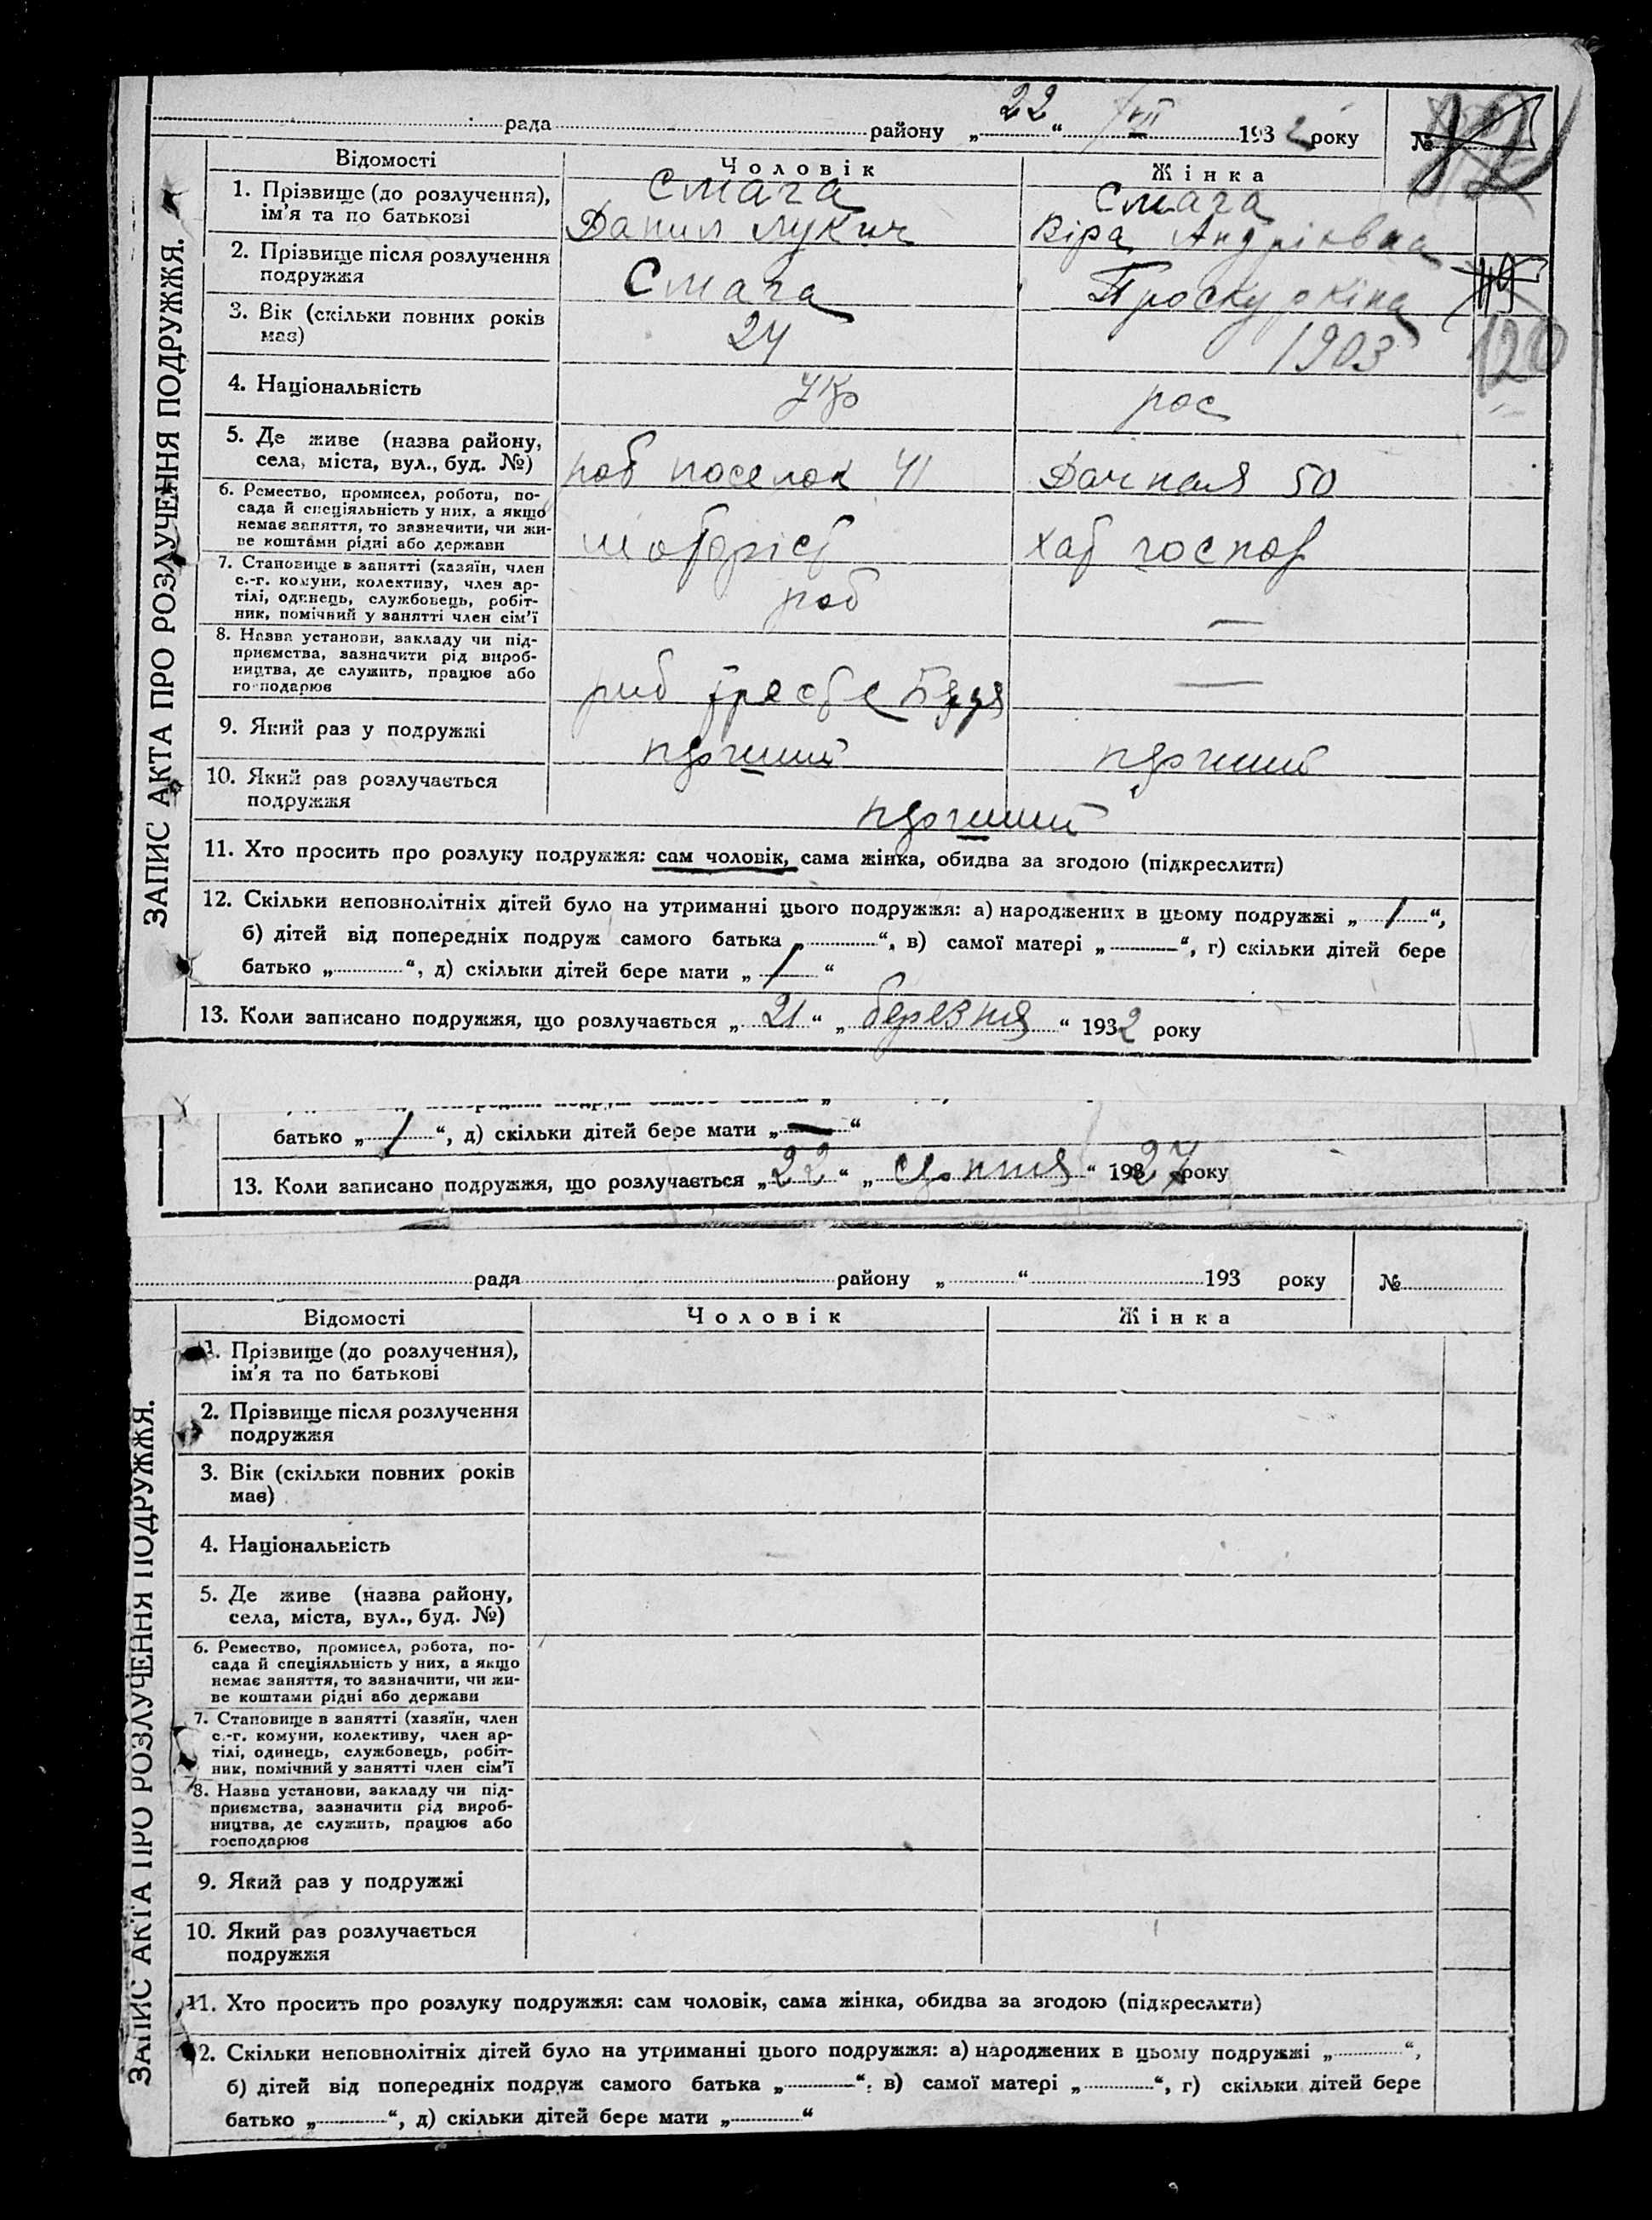 рада району „22“ VII 1932 року №
ЗАПИС АКТА ПРО РОЗЛУЧЕННЯ ПОДРУЖЖЯ.
Відомості Чоловік Жінка
1. Прізвище (до розлучення), ім'я та по батькові
Смага Смага
Данил Лукич Віра Андріівна
2. Прізвище після розлучення подружжя
Смага Проскуркіна
3. Вік (скільки повних років має)
24 1903
120
4. Національність
Укр рос
5. Де живе (назва району,
села, міста, вул., буд. №)
роб поселок 41 Дачная 50
6. Ремество, промисел, робота, по-
сада й спеціяльність у них, а якщо
немає заняття, то зазначити, чи жи-
ве коштами рідні або держави
хат господ
7. Становище в занятті (хазяїн, член
с.-г. комуни, колективу, член ар-
тілі, одинець, службовець, робіт-
ник, помічний у занятті член сім'ї
роб —
8. Назва установи, закладу чи під-
приємства, зазначити рід вироб-
ництва, де служить, працює або
господарює
—
9. Який раз у подружжі
перший перший
10. Який раз розлучається
подружжя
перший
11. Хто просить про розлуку подружжя: сам чоловік, сама жінка, обидва за згодою (підкреслити)
12. Скільки неповнолітніх дітей було на утриманні цього подружжя: а) народжених в цьому подружжі „1“,
б) дітей від попередніх подруж самого батька „ “, в) самої матері „ “, г) скільки дітей бере
батько „ “, д) скільки дітей бере мати „1“
13. Коли записано подружжя, що розлучається „21“ „березня“ 1932 року
батько „1“, д) скільки дітей бере мати „—“
13. Коли записано подружжя, що розлучається „22“ „серпня“ 1927 року
рада району „ “ 193 року №
ЗАПИС АКТА ПРО РОЗЛУЧЕННЯ ПОДРУЖЖЯ.
Відомості Чоловік Жінка
1. Прізвище (до розлучення),
ім'я та по батькові
2. Прізвище після розлучення
подружжя
3. Вік (скільки повних років
має)
4. Національність
5. Де живе (назва району,
села, міста, вул., буд. №)
6. Ремество, промисел, робота, по-
сада й спеціяльність у них, а якщо
немає заняття, то зазначити, чи жи-
ве коштами рідні або держави
7. Становище в занятті (хазяїн, член
с.-г. комуни, колективу, член ар-
тілі, одинець, службовець, робіт-
ник, помічний у занятті член сім'ї
8. Назва установи, закладу чи під-
приємства, зазначити рід вироб-
ництва, де служить, працює або
господарює
9. Який раз у подружжі
10. Який раз розлучається
подружжя
11. Хто просить про розлуку подружжя: сам чоловік, сама жінка, обидва за згодою (підкреслити)
12. Скільки неповнолітніх дітей було на утриманні цього подружжя: а) народжених в цьому подружжі „ “,
б) дітей від попередніх подруж самого батька „ “, в) самої матері „ “, г) скільки дітей бере
батько „ “, д) скільки дітей бере мати „ “